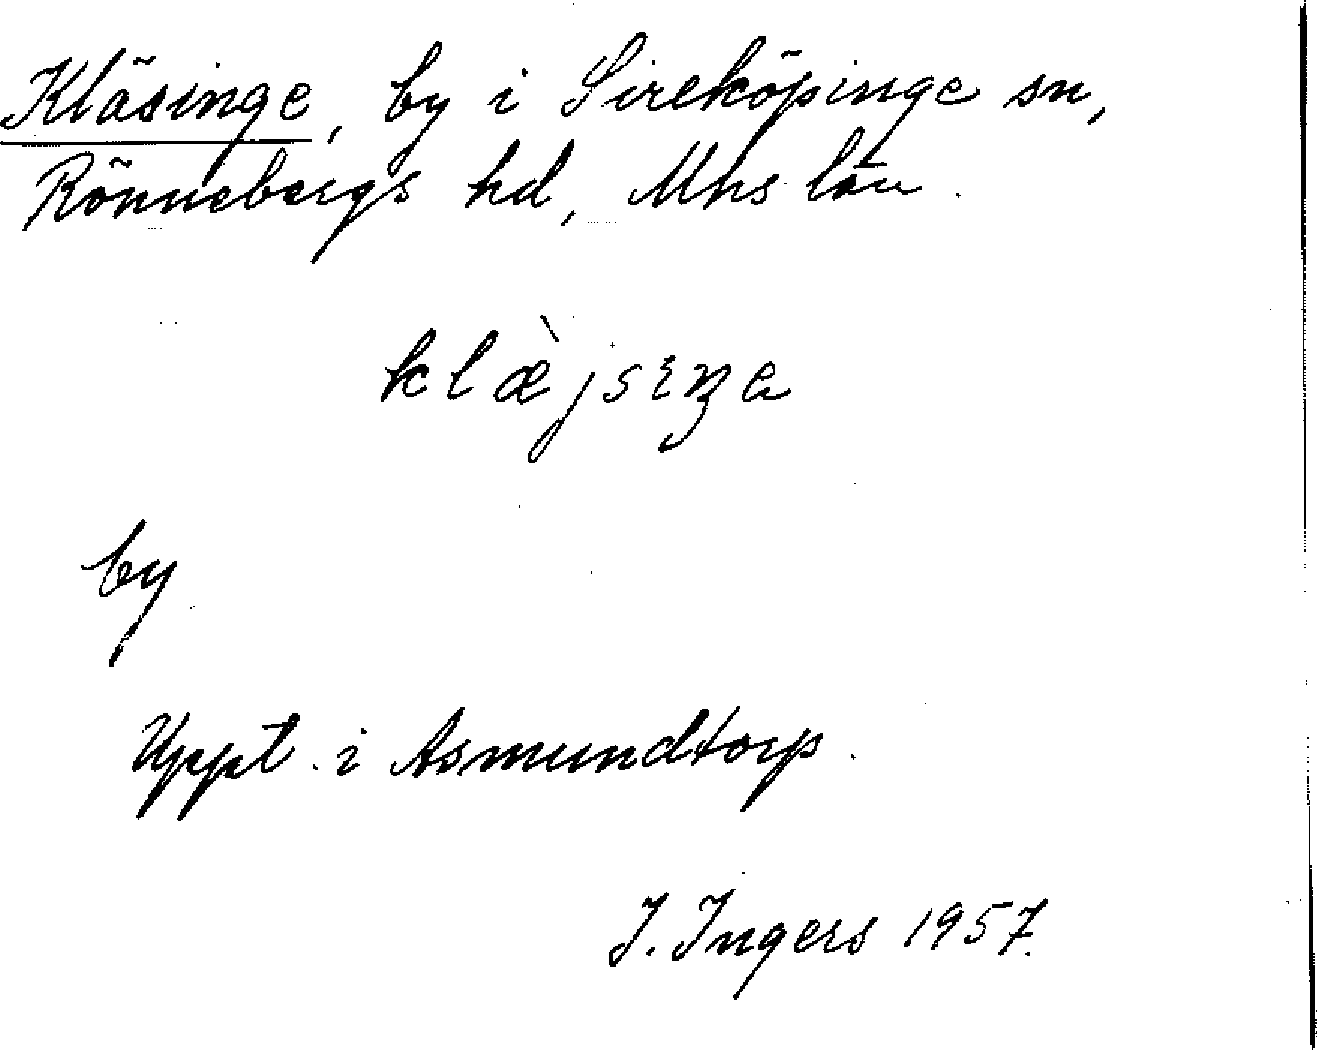 Kläsinge, by i Sireköpinge sn,
Rönnebergs hd, Mhs län.
klæ̀jsiŋa
by
Uppt. i Asmundtorp.
J. Ingers 1957.